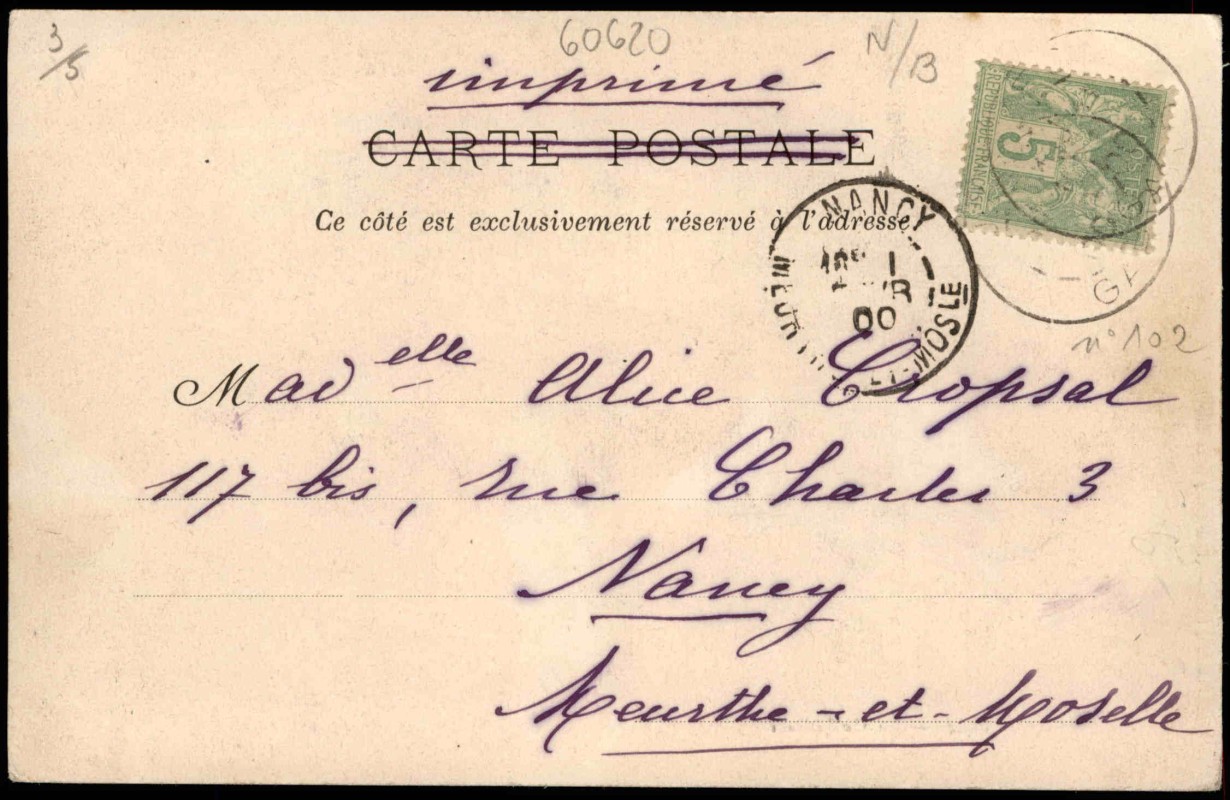 3/5
60620
N/B
imprimé
CARTE POSTALE
RÉPUBLIQUE FRANÇAISE
5
Ce côté est exclusivement réservé à l'adresse
NANCY
00
n° 102
Mad elle Alice Cropsal
117 bis, rue Charles 3
Nancy
Meurthe-et-Moselle